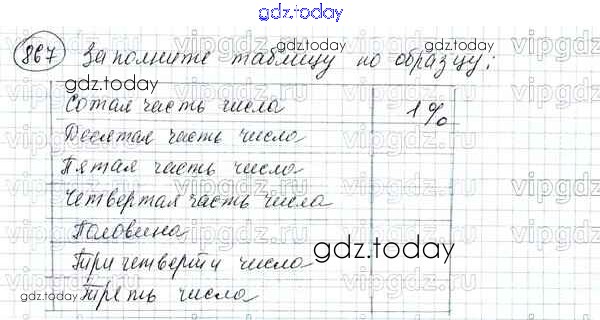 gdz.today
867 Заполните таблицу по образцу:
gdz.today
gdz.today
Сотая часть числа 1%
Десятая часть числа
Пятая часть числа
Четвертая часть числа
Половина
gdz.today
Три четверти числа
gdz.today
Треть числа
gdz.today
vipgdz.ru